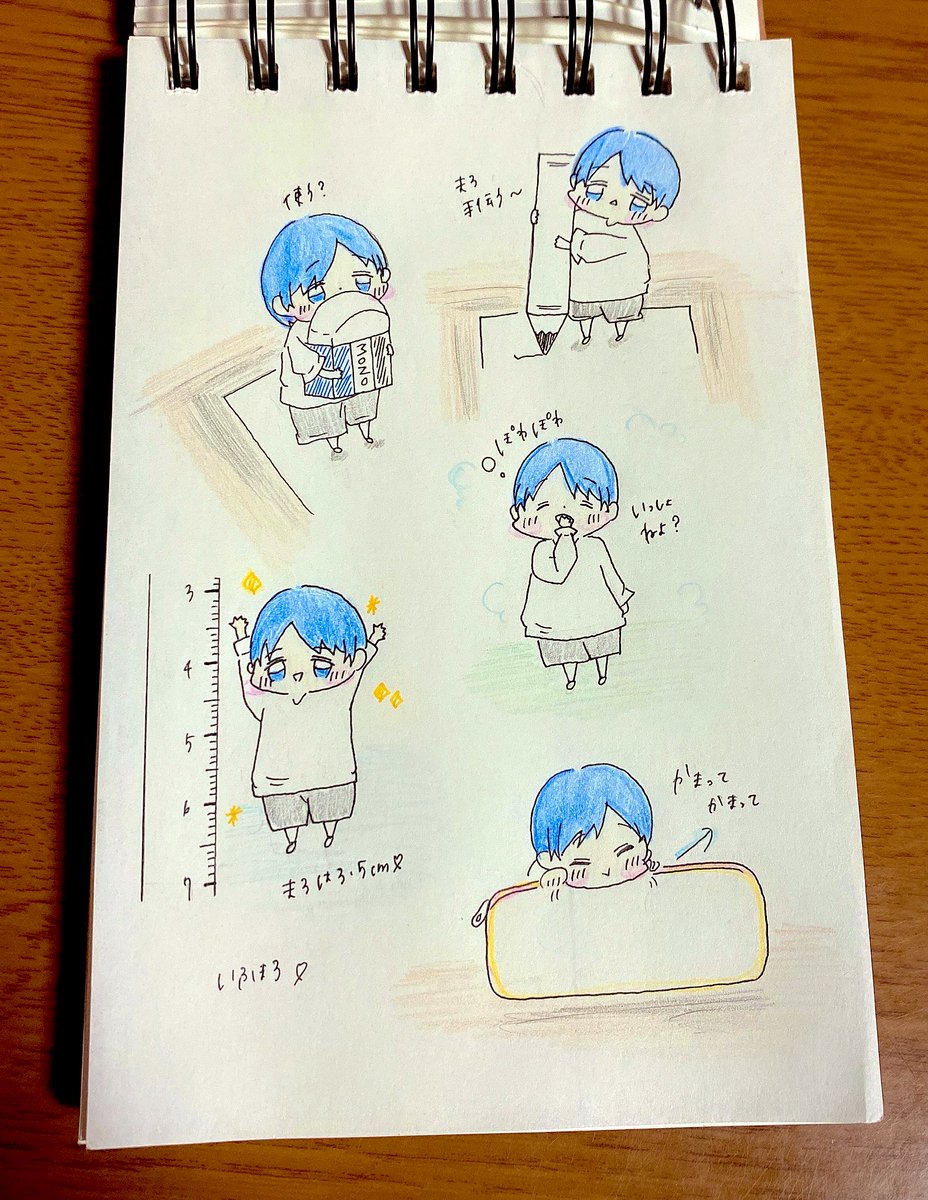 使う?
MONO
まろ
手伝う〜
ぽわぽわ
いっしょ
ねよ?
3
4
5
6
7
まろは3.5cm♡
かまって
かまって
いふまろ♡